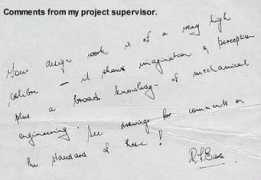 Comments from my project supervisor.
Your design work is of a very high
calibre – it shows imagination & perception
plus a broad knowledge of mechanical
engineering. See drawings for comments on
the standard of these!